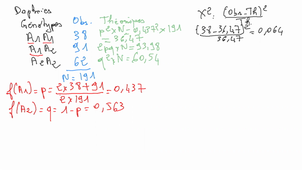 Daphnies
Génotypes Obs. Théoriques
A1A1 38 p²×N=0,437²×191
=36,47
A1A2 91 2pq×N=93,98
A2A2 62 q²×N=60,54
N=191
f(A1)=p=2×38+91=0,437
2×191
f(A2)=q=1-p=0,563
(Obs-TR)²
TR
(38-36,47)²=0,064
36,47